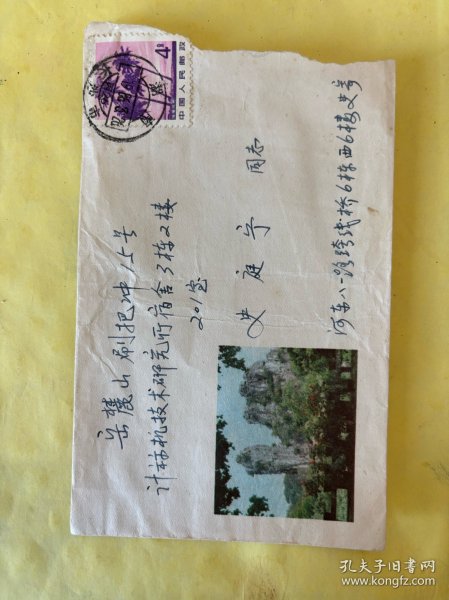 4分
中国人民邮政
岳麓山刷把冲15号
计祘机技术研究所宿舍3栋2楼
201室
史庭宁 同志
河东八一路跨线桥6栋西6楼史寄
孔夫子旧书网
www.kongfz.com